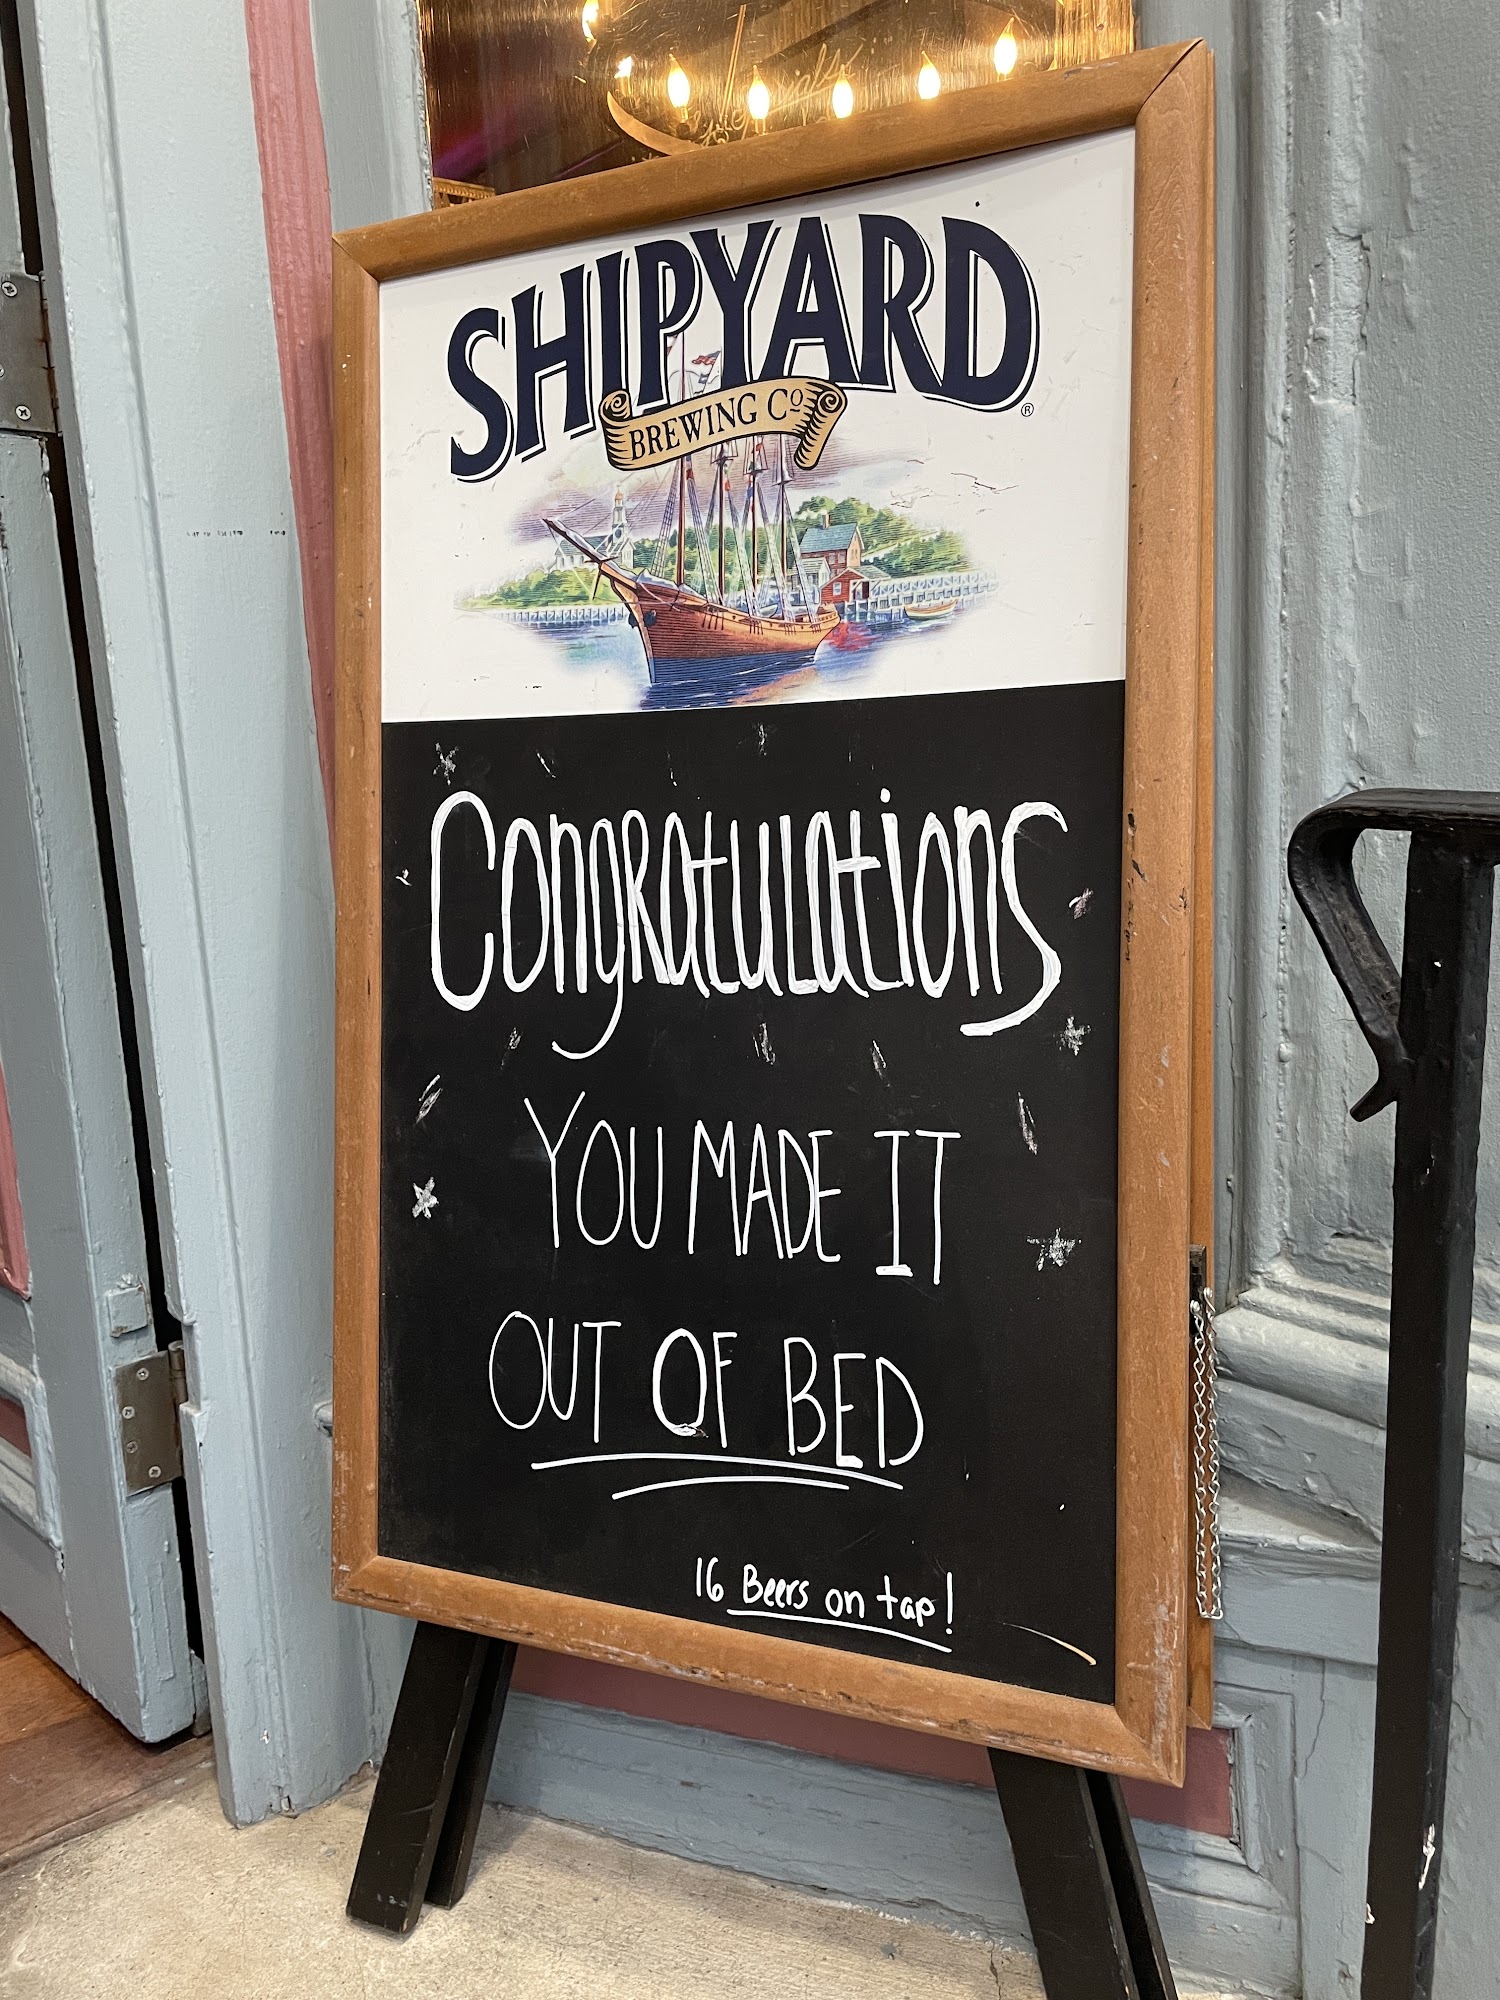 Specials
SHIPYARD
®
BREWING Cº
Congratulations
YOU MADE IT
OUT OF BED
16 Beers on tap!